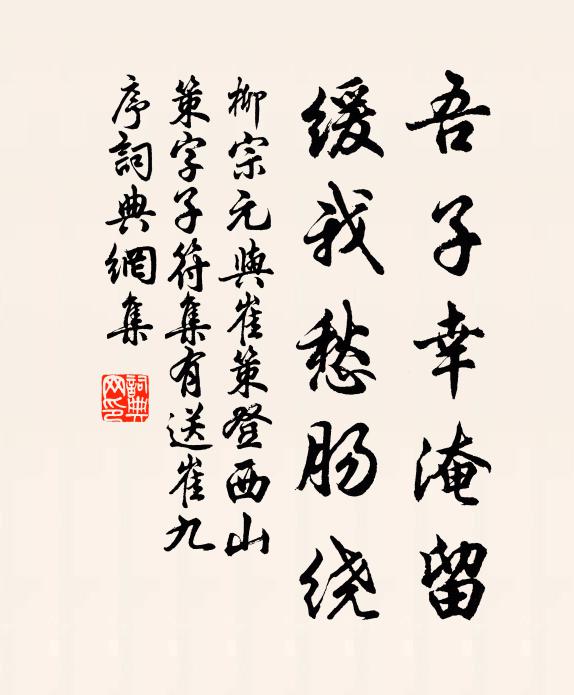 吾子幸淹留
缓我愁肠绕
柳宗元與崔策登西山
策字子符集有送崔九
序詞典網集
詞典網印